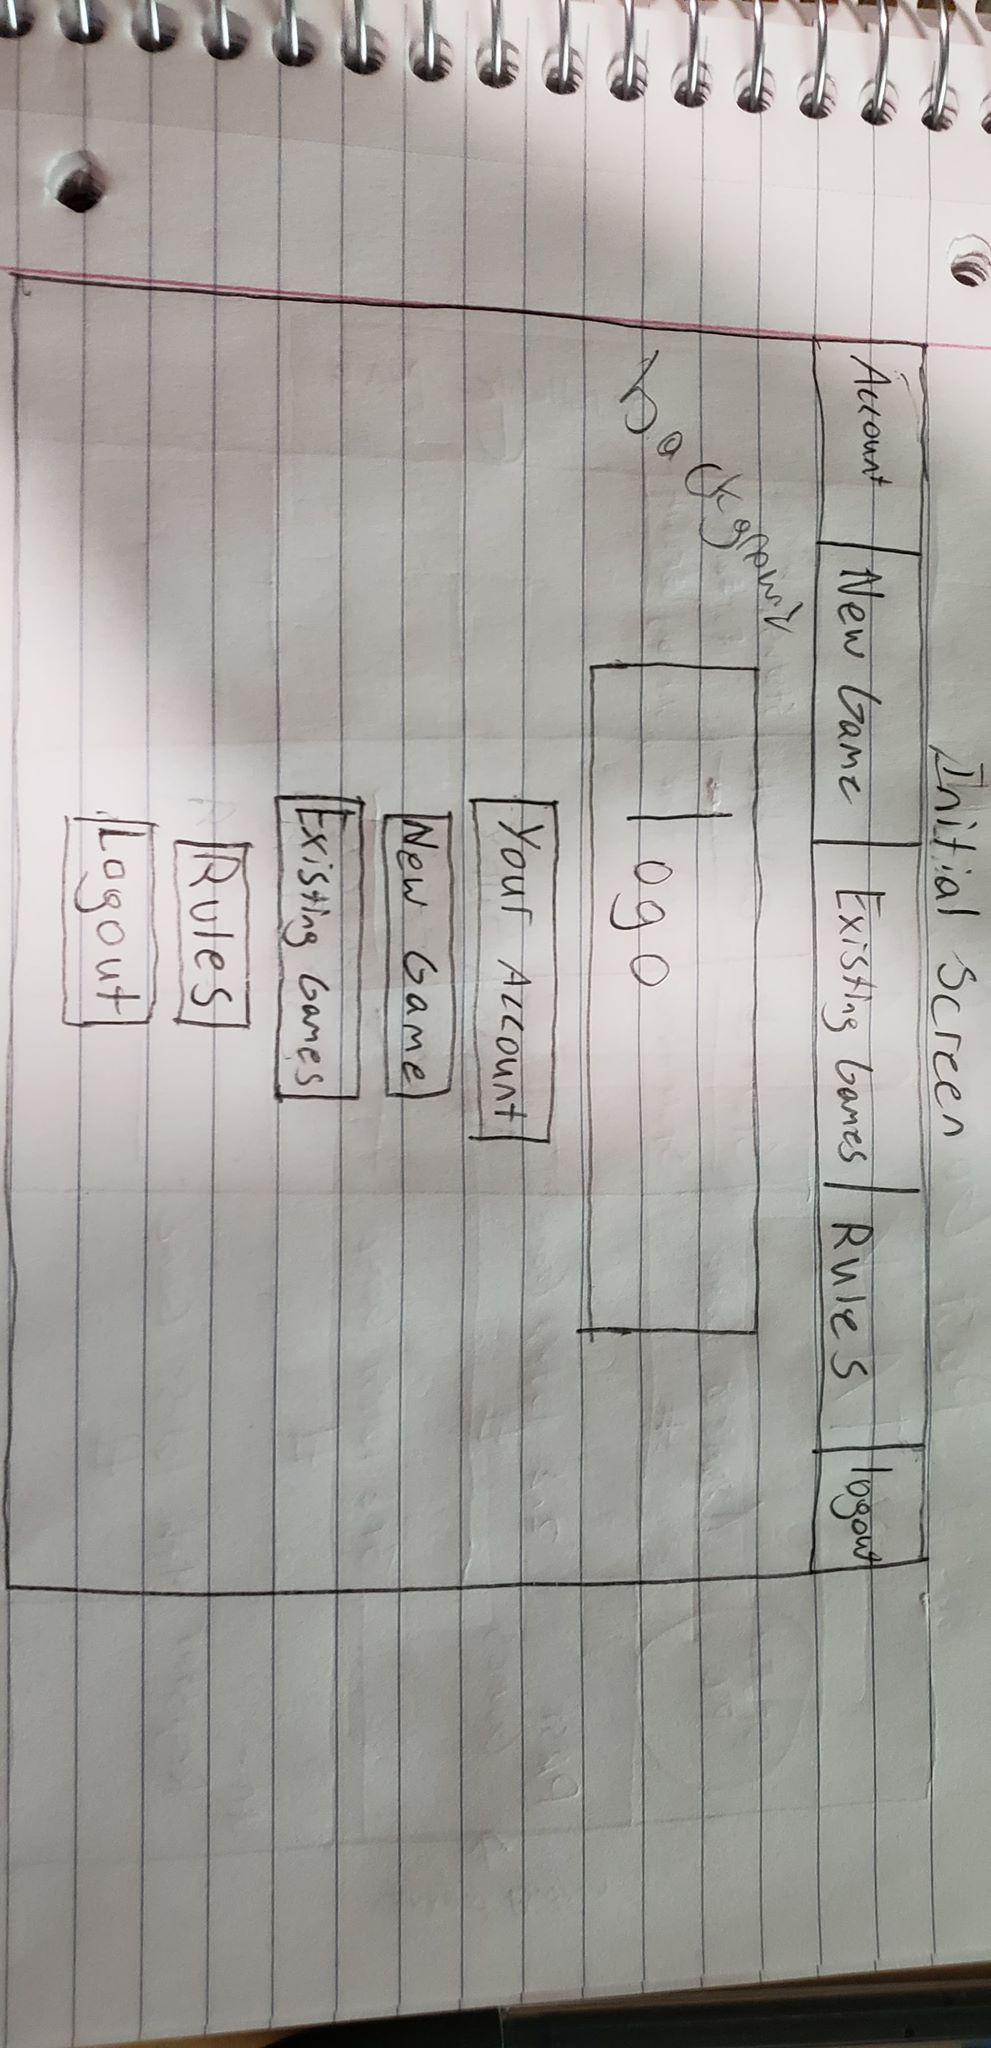 Initial Screen
Account New Game Existing Games Rules logout
Background
logo
Your Account
New Game
Existing Games
Rules
Logout